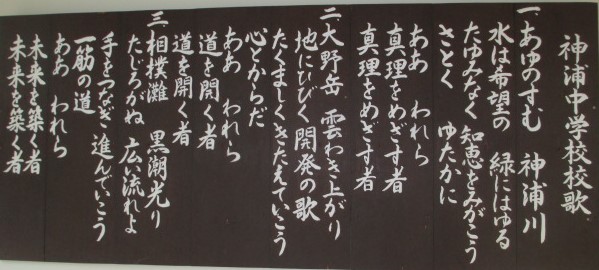 神浦中学校校歌
一、あゆのすむ 神浦川
水は希望の 緑にはゆる
たゆみなく 知恵をみがこう
さとく ゆたかに
ああ われら
真理をめざす者
真理をめざす者
二、大野岳 雲わき上がり
地にひびく 開発の歌
たくましくきたえていこう
心とからだ
ああ われら
道を開く者
道を開く者
三、相撲灘 黒潮光り
たじろがぬ 広い流れよ
手をつなぎ 進んでいこう
一筋の道
ああ われら
未来を築く者
未来を築く者